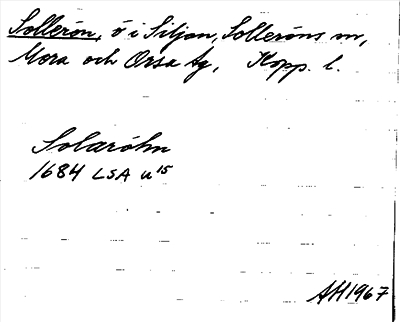 Sollerön, ö i Siljan, Solleröns sn,
Mora och Orsa tg, Kopp. l.
Solaröhn
1684 LSA u15
AH1967